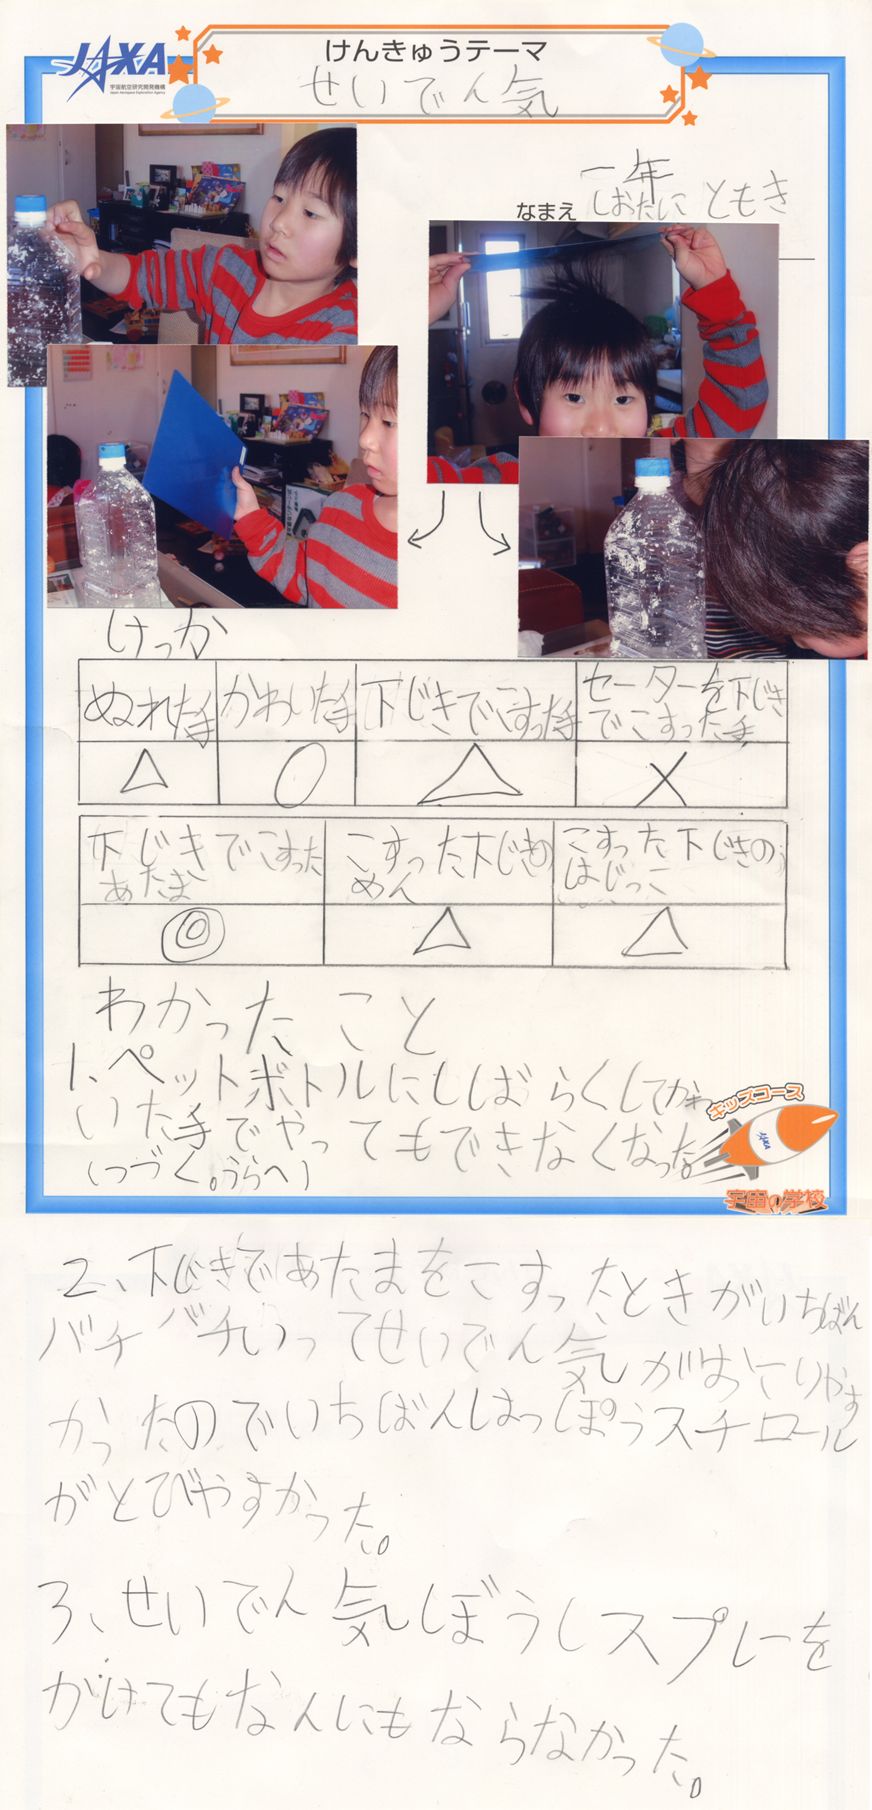 JAXA
宇宙航空研究開発機構
Japan Aerospace Exploration Agency
けんきゅうテーマ
せいでん気
一年
なまえ しおたに ともき
けっか
ぬれた手
かわいた手
下じきでこすった手
セーターを下じき
でこすった手
△
○
△
×
下じきでこすった
あたま
こすった下じきの
めん
こすった下じきの
はじっこ
◎
△
△
わかったこと
1、ペットボトルにしばらくしてかわ
いた手でやってもできなくなった。
(つづく。うらへ)
キッズコース
JAXA
宇宙の学校
2、下じきであたまをこすったときがいちばん
バチバチいってせいでん気がおこりやす
かったのでいちばんはっぽうスチロール
がとびやすかった。
3、せいでん気ぼうしスプレーを
かけてもなんにもならなかった。